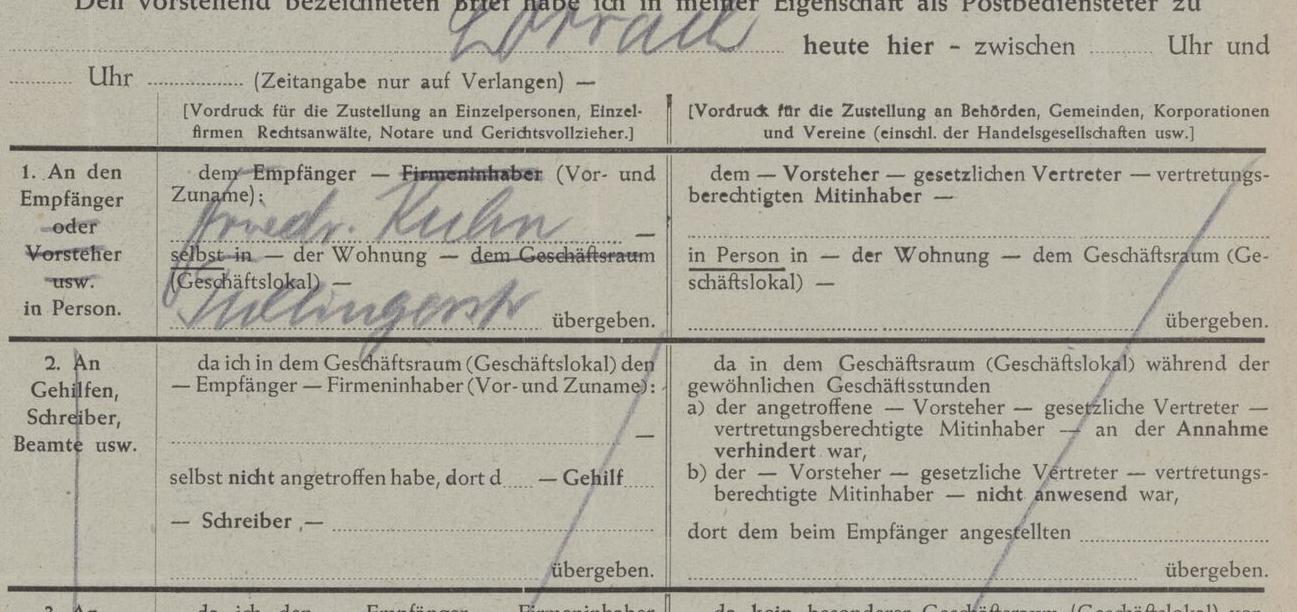 Den vorstehend bezeichneten Brief habe ich in meiner Eigenschaft als Postbediensteter zu
Lörrach heute hier - zwischen Uhr und
Uhr (Zeitangabe nur auf Verlangen) —
[Vordruck für die Zustellung an Einzelpersonen, Einzel-
firmen Rechtsanwälte, Notare und Gerichtsvollzieher.]
[Vordruck für die Zustellung an Behörden, Gemeinden, Korporationen
und Vereine (einschl. der Handelsgesellschaften usw.]
1. An den
Empfänger
oder
Vorsteher
usw.
in Person.
dem Empfänger — Firmeninhaber (Vor- und
Zuname):
Friedr. Kuhn —
selbst in — der Wohnung — dem Geschäftsraum
(Geschäftslokal) —
Tullingerstr übergeben.
dem — Vorsteher — gesetzlichen Vertreter — vertretungs-
berechtigten Mitinhaber —
in Person in — der Wohnung — dem Geschäftsraum (Ge-
schäftslokal) —
übergeben.
2. An
Gehilfen,
Schreiber,
Beamte usw.
da ich in dem Geschäftsraum (Geschäftslokal) den
— Empfänger — Firmeninhaber (Vor- und Zuname):
—
selbst nicht angetroffen habe, dort d — Gehilf
— Schreiber —
übergeben.
da in dem Geschäftsraum (Geschäftslokal) während der
gewöhnlichen Geschäftsstunden
a) der angetroffene — Vorsteher — gesetzliche Vertreter —
vertretungsberechtigte Mitinhaber — an der Annahme
verhindert war,
b) der — Vorsteher — gesetzliche Vertreter — vertretungs-
berechtigte Mitinhaber — nicht anwesend war,
dort dem beim Empfänger angestellten
übergeben.
3. An
da ich den Empfänger Firmeninhaber
da kein besonderer Geschäftsraum (Geschäftslokal)